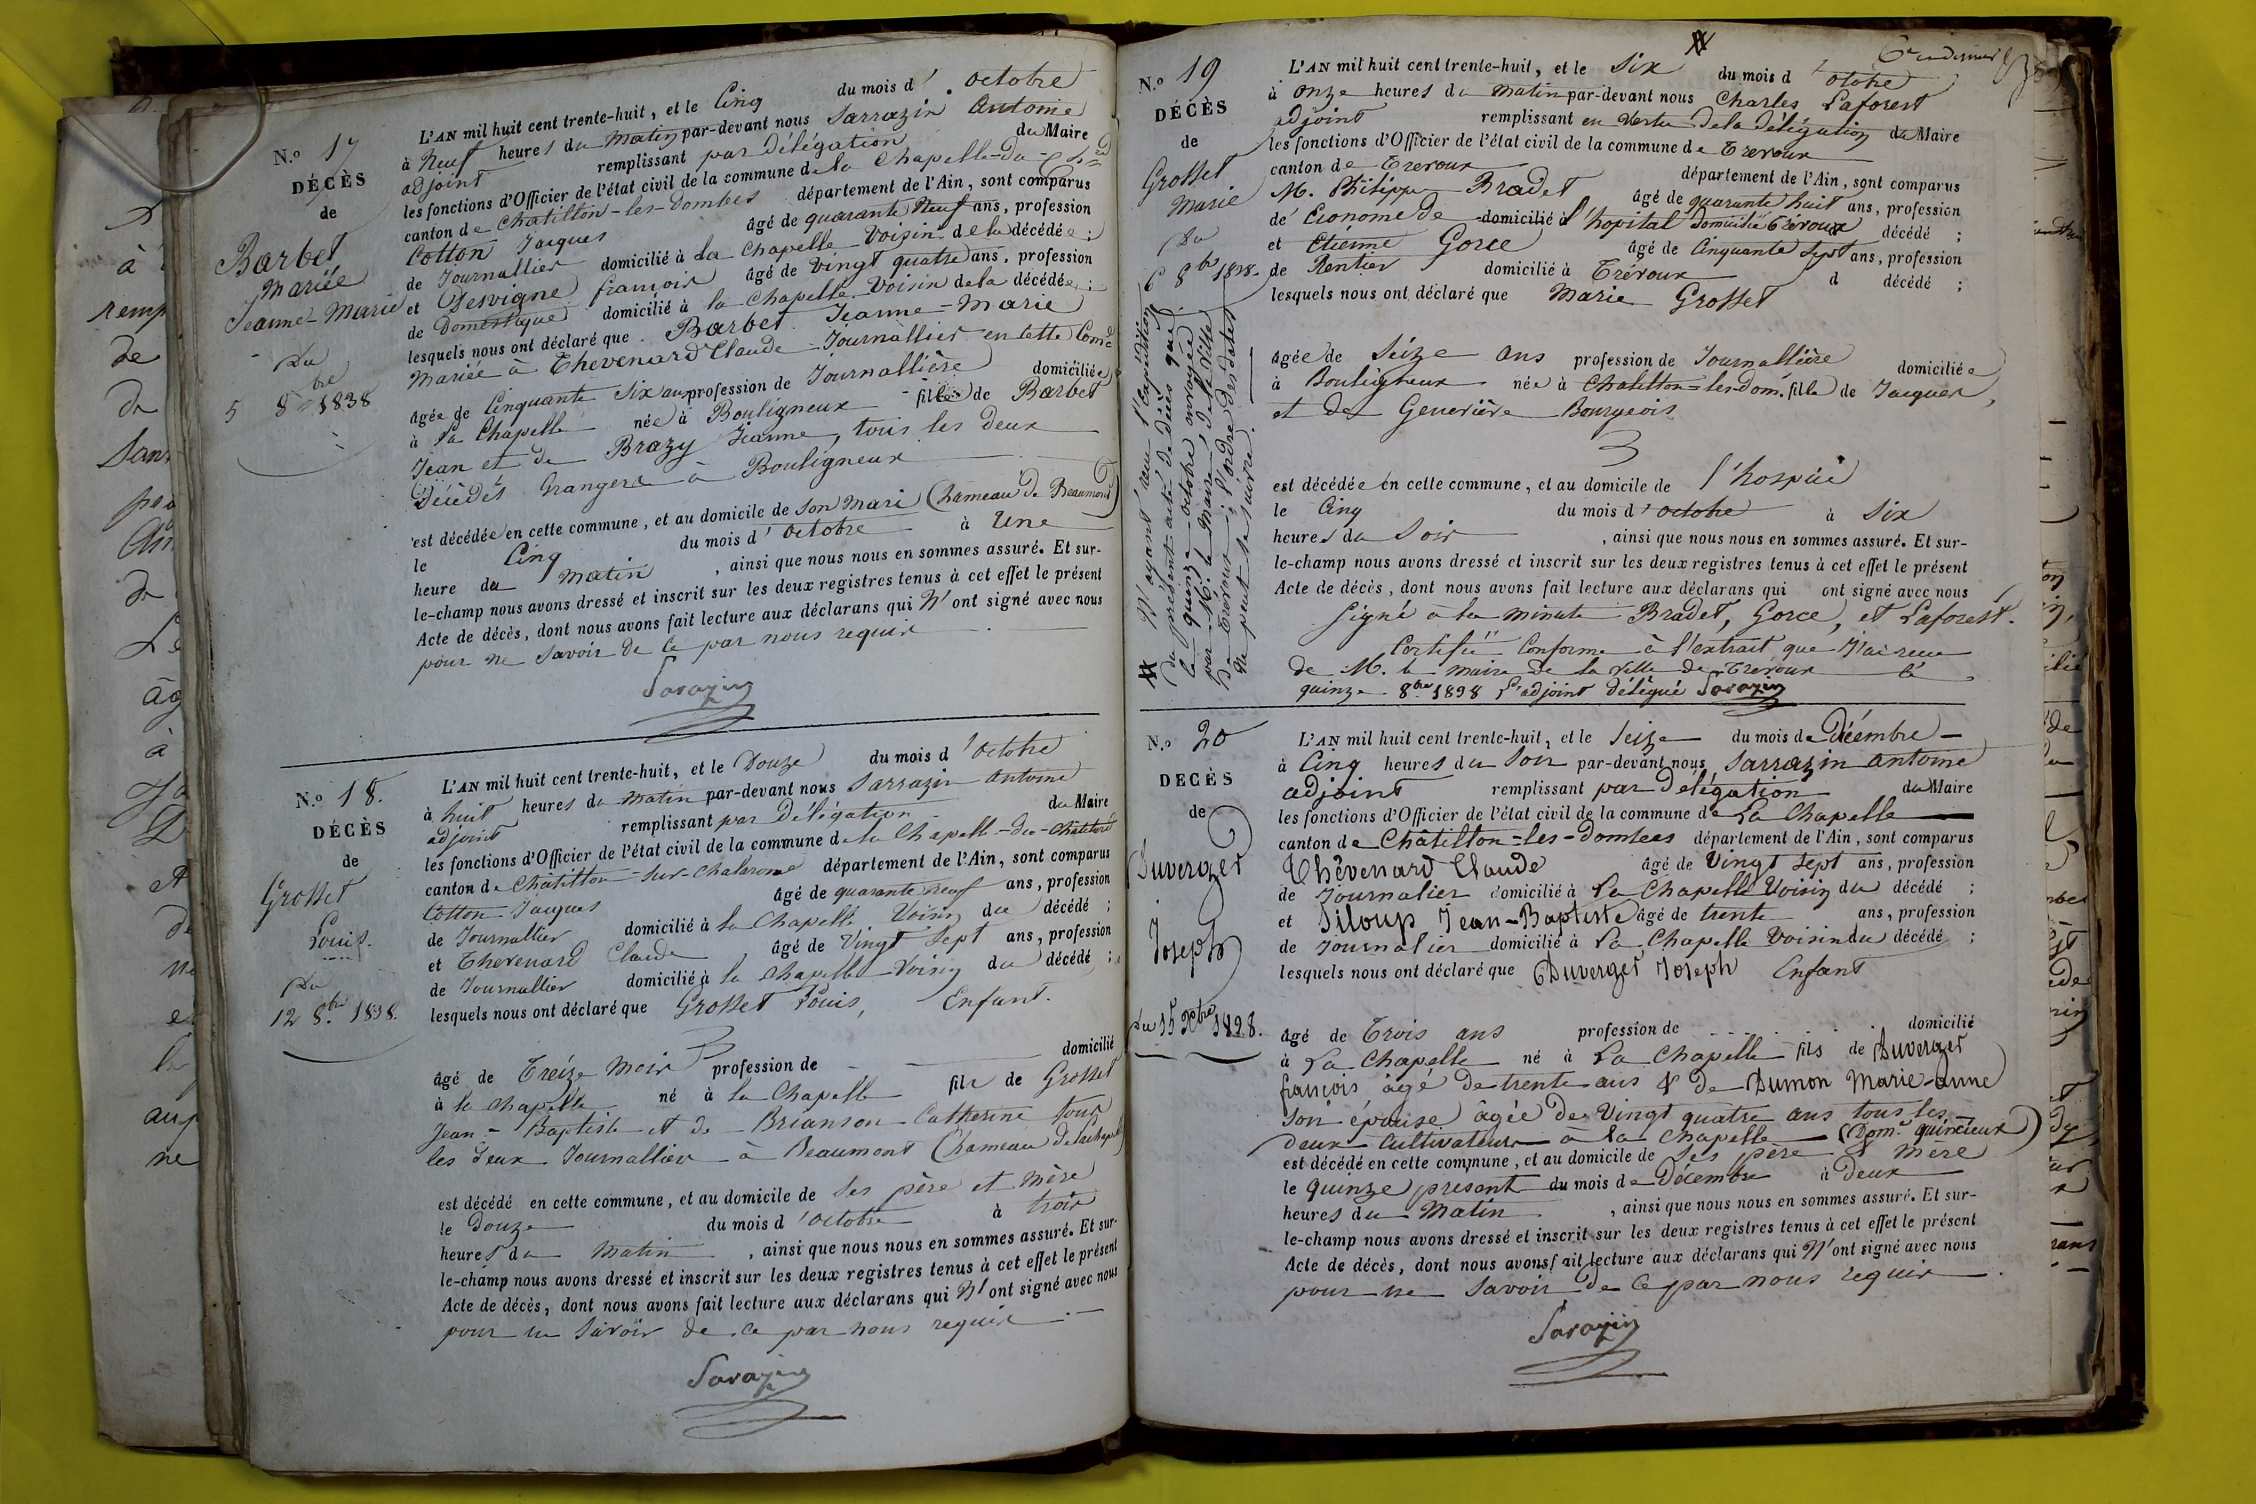 N.º 17
DÉCÈS
de
Barbet
Mariée
Jeanne-Marie
Du
5 8bre 1838
L'AN mil huit cent trente-huit, et le Cinq du mois d'octobre
à Neuf heures du matin par-devant nous Sarrazin Antoine
adjoint remplissant par Délégation du Maire
les fonctions d'Officier de l'état civil de la commune de la Chapelle-du-
canton de Chatillon-les-Dombes département de l'Ain, sont comparus
Cotton Jacques âgé de quarante Neuf ans, profession
de Journallier domicilié à La Chapelle Voisin de la décédée ;
et Desvigne françois âgé de Vingt quatre ans, profession
de Domestique domicilié à la Chapelle Voisin de la décédée ;
lesquels nous ont déclaré que Barbet Jeanne-Marie
Mariée à Thevenard Claude Journallier en cette Comne
âgée de Cinquante Six ans profession de Journallière domiciliée
à La Chapelle née à Bouligneux fille de Barbet
Jean et de Brazy Jeanne, tous les deux
Décédés Grangers à Bouligneux
est décédée en cette commune, et au domicile de son Mari (hameau de Beaumont)
le Cinq du mois d'octobre à Une
heure du matin, ainsi que nous nous en sommes assuré. Et sur-
le-champ nous avons dressé et inscrit sur les deux registres tenus à cet effet le présent
Acte de décès, dont nous avons fait lecture aux déclarans qui N'ont signé avec nous
pour ne savoir de ce par nous requis
Sarazin
N.º 18.
DÉCÈS
de
Grosset
Louis.
Du
12 8bre 1838.
L'AN mil huit cent trente-huit, et le Douze du mois d'octobre
à huit heures du matin par-devant nous Sarrazin Antoine
adjoint remplissant par Délégation du Maire
les fonctions d'Officier de l'état civil de la commune de la Chapelle-du-Châtelard
canton de Châtillon-sur-Chalaronne département de l'Ain, sont comparus
Cotton Jacques âgé de quarante neuf ans, profession
de Journallier domicilié à la Chapelle Voisin du décédé ;
et Thevenard Claude âgé de Vingt Sept ans, profession
de Journallier domicilié à la Chapelle Voisin du décédé ;
lesquels nous ont déclaré que Grosset Louis, Enfant.
âgé de Treize Mois profession de domicilié
à la Chapelle né à La Chapelle fils de Grosset
Jean-Baptiste et de Brianson Catherine tous
les deux Journallier à Beaumont (hameau de Lachapelle)
est décédé en cette commune, et au domicile de ses père et mère
le Douze du mois d'octobre à trois
heures du Matin, ainsi que nous nous en sommes assuré. Et sur-
le-champ nous avons dressé et inscrit sur les deux registres tenus à cet effet le présent
Acte de décès, dont nous avons fait lecture aux déclarans qui N'ont signé avec nous
pour ne savoir de ce par nous requis
Sarazin
N.º 19
DÉCÈS
de
Grosset
Marie
Du
6 8bre 1838.
N'ayant reçu l'Expédition
du présent acte de décès que
le quinze octobre envoyée
par Mr. le Maire de la Ville
de Trévoux ; l'ordre des dates
ne peut le suivre.
L'AN mil huit cent trente-huit, et le Six du mois d'octobre
à onze heures du matin par-devant nous Charles Laforest
adjoint remplissant en Vertu de la délégation du Maire
les fonctions d'Officier de l'état civil de la commune de Trévoux
canton de Trévoux département de l'Ain, sont comparus
M. Philippe Bradet âgé de quarante huit ans, profession
de Econome de domicilié à l'hopital domicilié Trévoux décédé ;
et Etienne Gorce âgé de Cinquante Sept ans, profession
de Rentier domicilié à Trévoux d décédé ;
lesquels nous ont déclaré que Marie Grosset
âgée de Seize ans profession de Journallière domiciliée
à Bouligneux née à Chatillon-les-Dom. fille de Jacques,
et de Genevière Bourgeois
est décédée en cette commune, et au domicile de l'hospice
le Cinq du mois d'octobre à Six
heures du Soir, ainsi que nous nous en sommes assuré. Et sur-
le-champ nous avons dressé et inscrit sur les deux registres tenus à cet effet le présent
Acte de décès, dont nous avons fait lecture aux déclarans qui ont signé avec nous
Signé à la minute Bradet, Gorce, et Laforest.
Certifié Conforme à l'extrait que J'ai reçu
de M. le maire de la Ville de Trévoux le
quinze 8bre 1838 L'adjoint délégué Sarazin
N.º 20
DÉCÈS
de
Duverger
Joseph
Du 15 Xbre 1838.
L'AN mil huit cent trente-huit, et le Seize du mois de Décembre
à Cinq heures du Soir par-devant nous Sarrazin antoine
adjoint remplissant par Délégation du Maire
les fonctions d'Officier de l'état civil de la commune de La Chapelle
canton de Châtillon-les-Dombes département de l'Ain, sont comparus
Thévenard Claude âgé de Vingt Sept ans, profession
de Journalier domicilié à La Chapelle Voisin du décédé ;
et Piloup Jean-Baptiste âgé de trente ans, profession
de Journalier domicilié à La Chapelle Voisin du décédé ;
lesquels nous ont déclaré que Duverger Joseph Enfant
âgé de Trois ans profession de domicilié
à La Chapelle né à La Chapelle fils de Duverger
françois âgé de trente ans & de Dumon Marie-anne
Son épouse âgée de Vingt quatre ans tous les
deux Cultivateurs à la Chapelle (Dom.e quincieux)
est décédé en cette commune, et au domicile de Ses père & mère
le quinze présent du mois de Décembre à Deux
heures du Matin, ainsi que nous nous en sommes assuré. Et sur-
le-champ nous avons dressé et inscrit sur les deux registres tenus à cet effet le présent
Acte de décès, dont nous avons fait lecture aux déclarans qui N'ont signé avec nous
pour ne Savoir de ce par nous requis
Sarazin